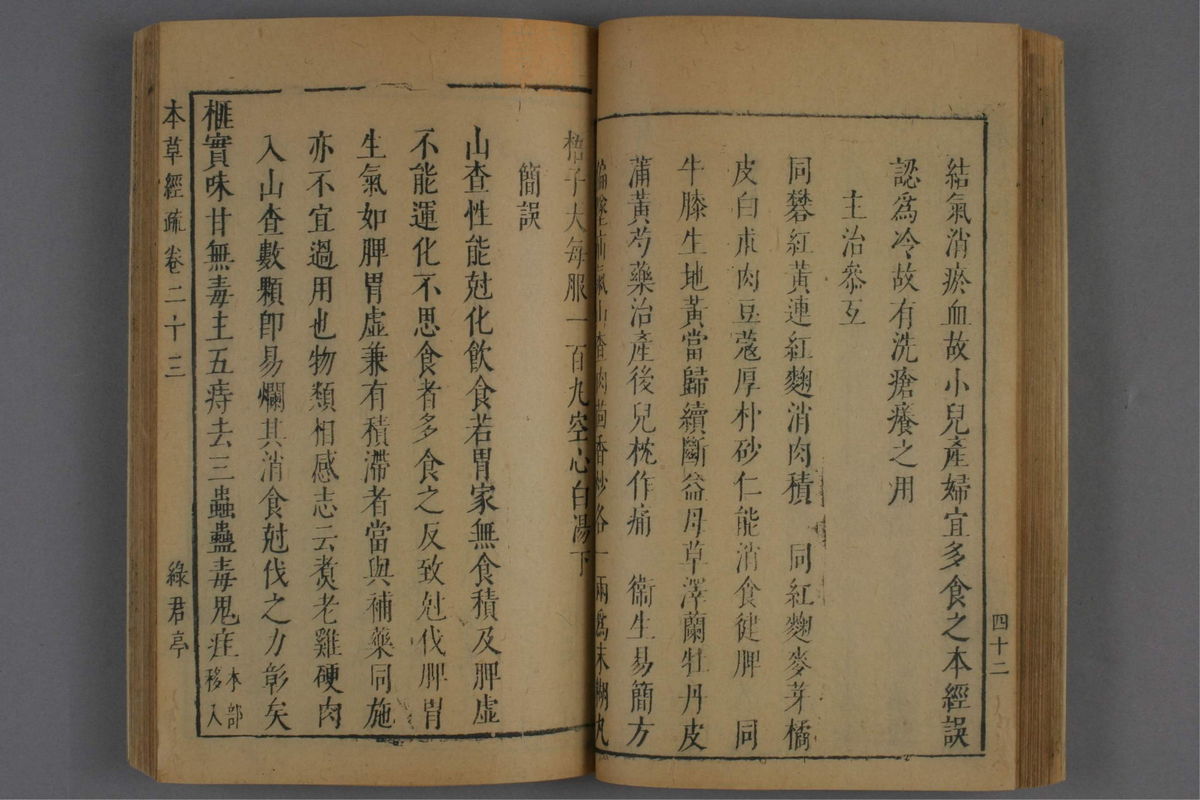 結氣消瘀血故小兒產婦宜多食之本經誤
認爲冷故有洗瘡癢之用
主治參互
同礬紅黃連紅麴消肉積　同紅麴麥芽橘
皮白朮肉豆蔻厚朴砂仁能消食健脾　同
牛膝生地黃當歸續斷益母草澤蘭牡丹皮
蒲黃芍藥治產後兒枕作痛　衞生易簡方
山查肉茴香炒各一兩爲末糊丸
梧子大每服一百丸空心白湯下
簡誤
山查性能尅化飲食若胃家無食積及脾虛
不能運化不思食者多食之反致尅伐脾胃
生氣如脾胃虛兼有積滯者當與補藥同施
亦不宜過用也物類相感志云煑老雞硬肉
入山查數顆卽易爛其消食尅伐之力彰矣
榧實味甘無毒主五痔去三蟲蠱毒鬼疰本部移入
四十二
本草經疏卷二十三
綠君亭